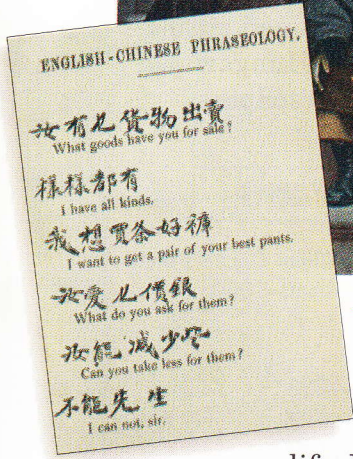 ENGLISH-CHINESE PHRASEOLOGY.
汝有乜貨物出賣
What goods have you for sale?
樣樣都有
I have all kinds.
我想買条好褲
I want to get a pair of your best pants.
汝愛乜價銀
What do you ask for them?
汝能減少些
Can you take less for them?
不能先生
I can not, sir.